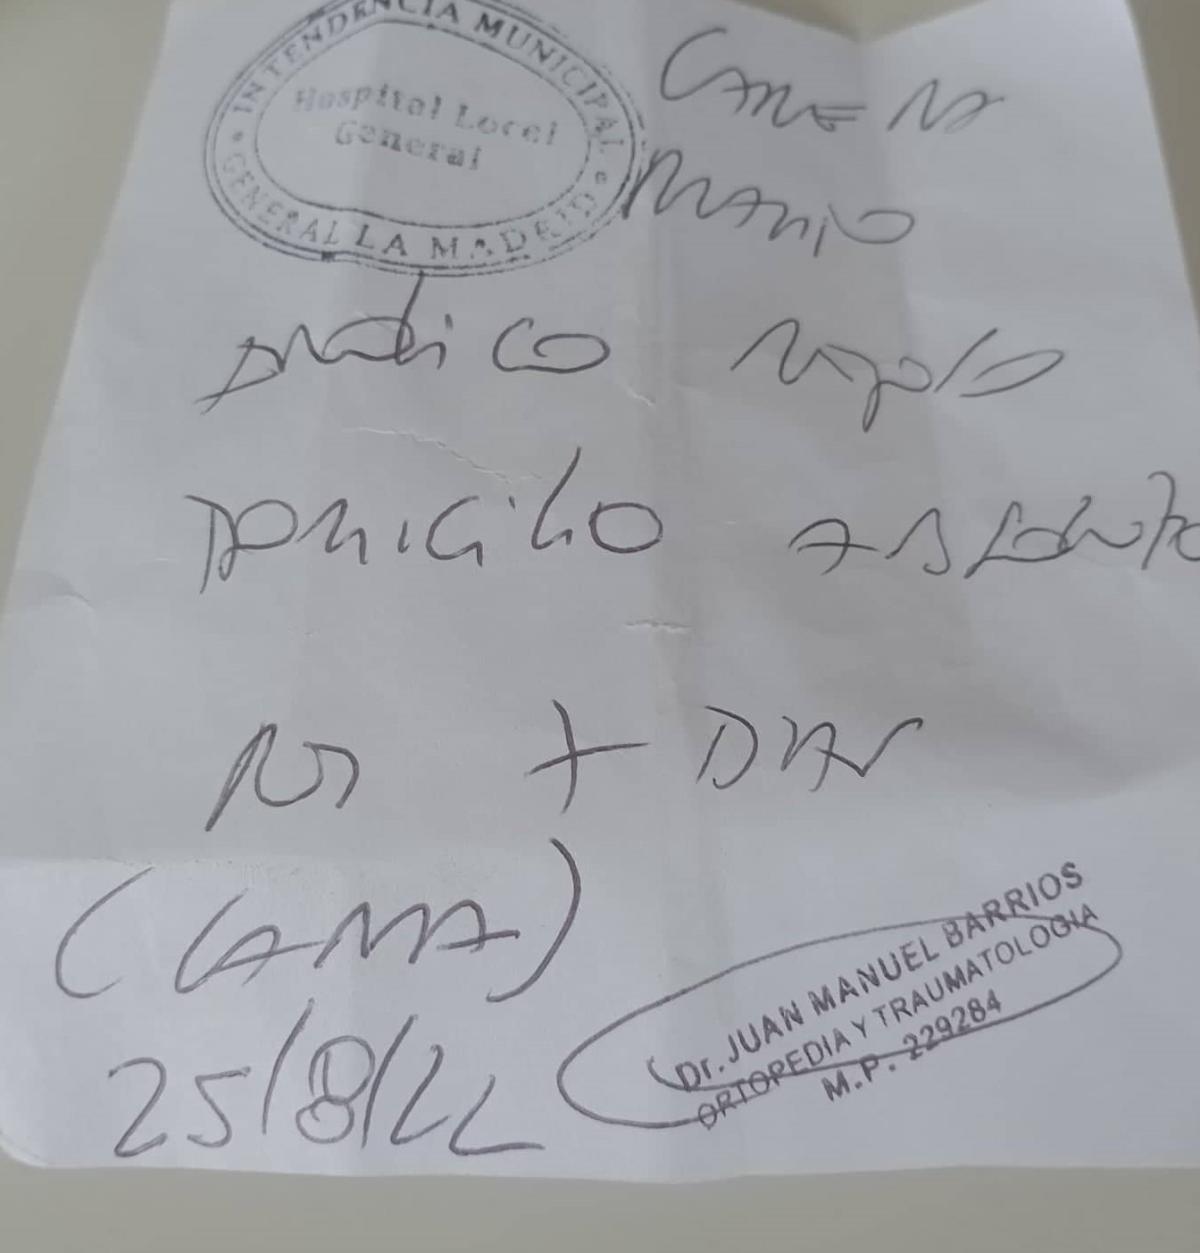 INTENDENCIA MUNICIPAL
Hospital Local
General
GENERAL LA MADRID
MARIO
indico reposo
Domicilio Absoluto
DIAS
(CAMA)
25/8/22
Dr. JUAN MANUEL BARRIOS
ORTOPEDIA Y TRAUMATOLOGIA
M.P. 229284